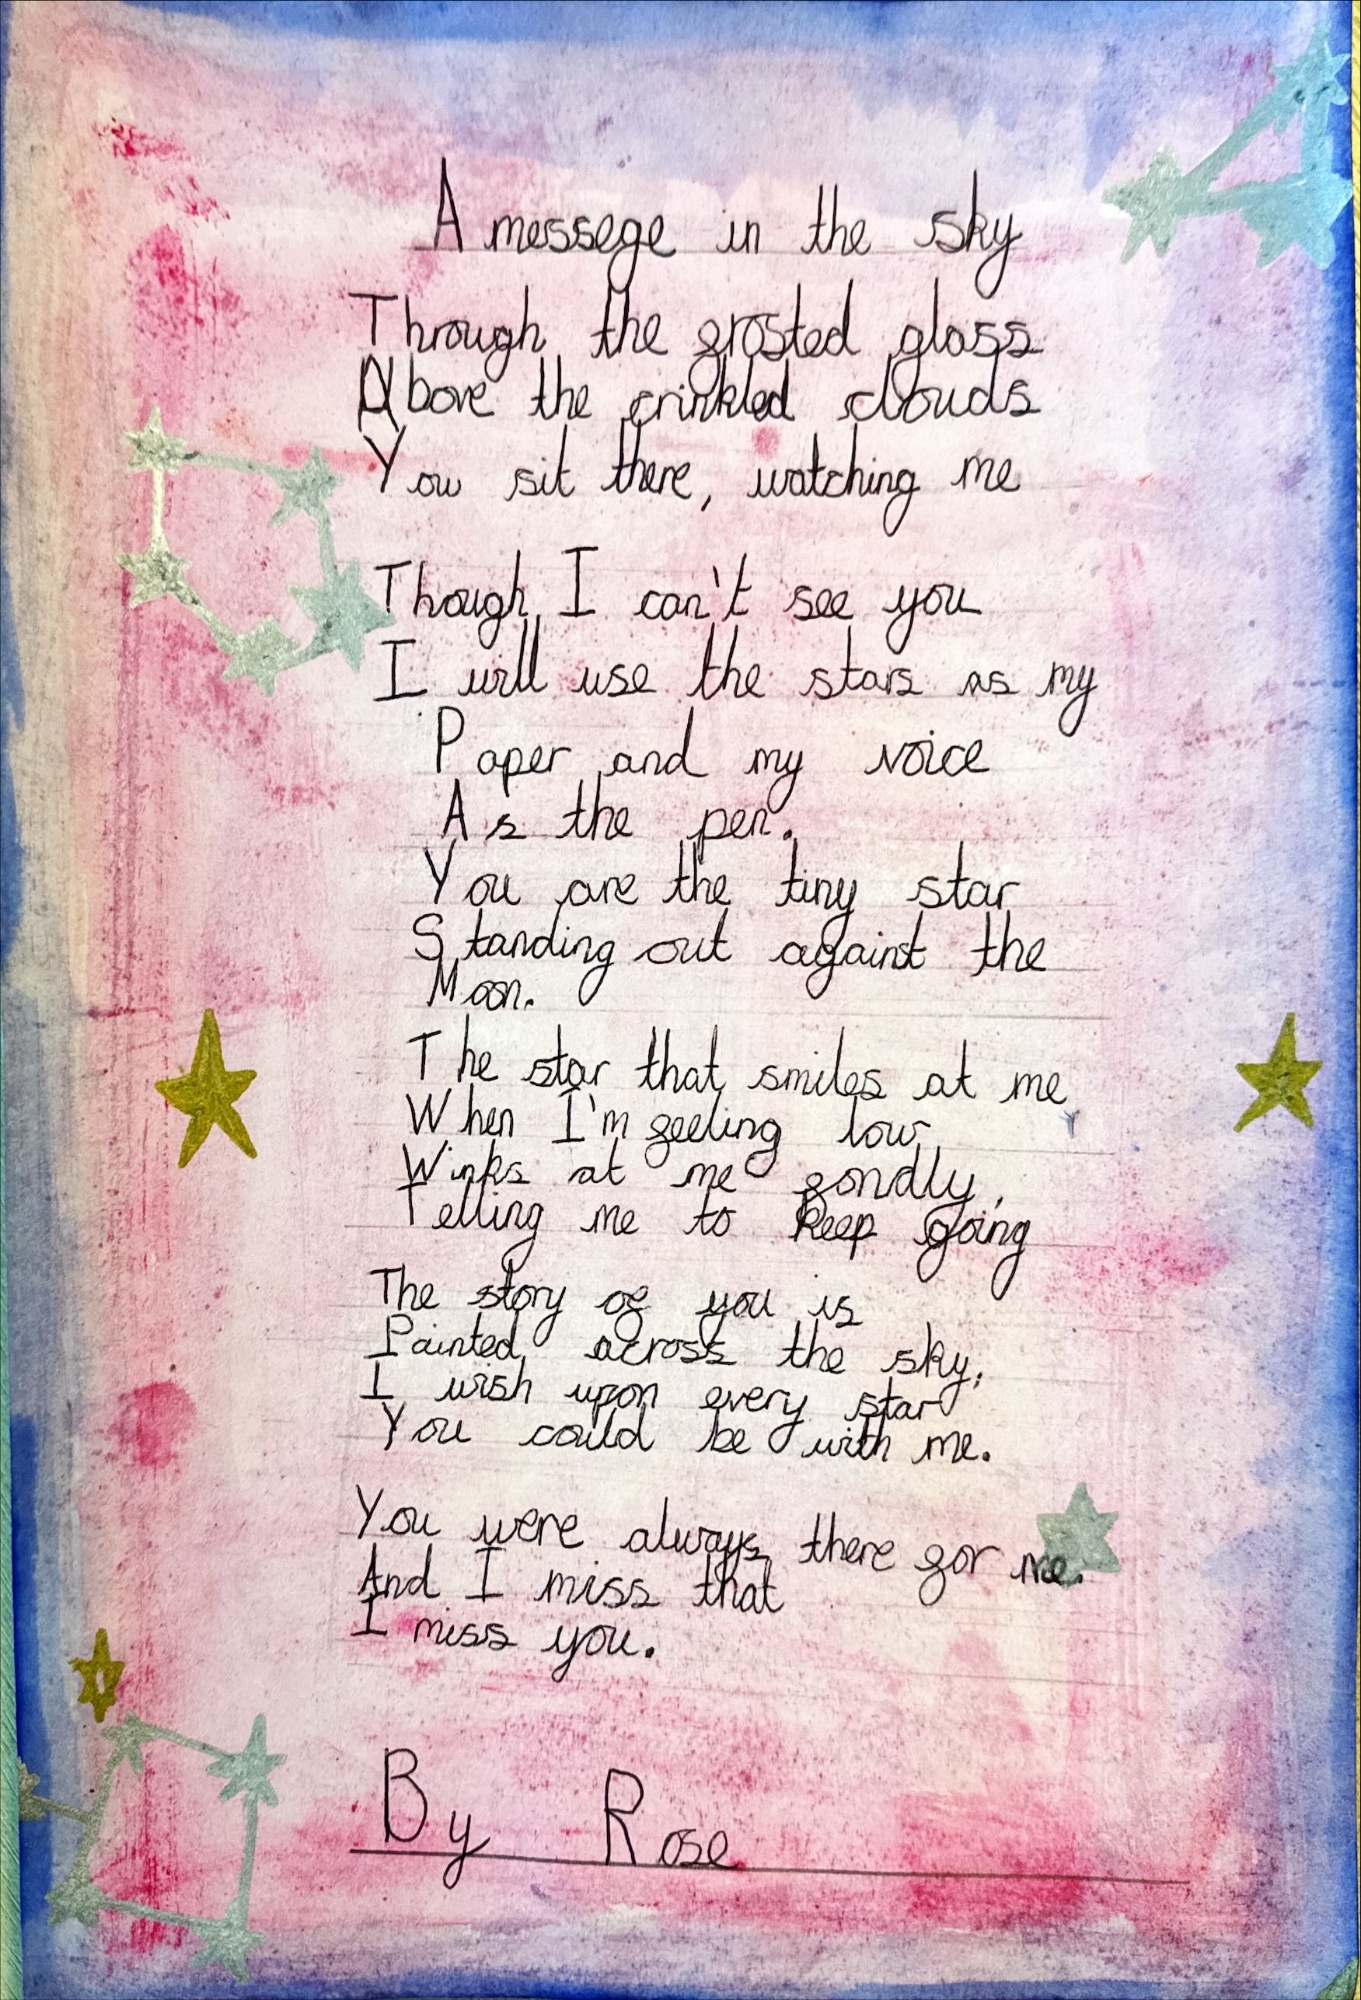 A messege in the sky
Through the frosted glass
Above the crinkled clouds
You sit there, watching me
Though I can't see you
I will use the stars as my
Paper and my voice
As the pen.
You are the tiny star
Standing out against the
Moon.
The star that smiles at me
When I'm feeling low
Winks at me fondly,
Telling me to keep going
The story of you is
Painted across the sky,
I wish upon every star
You could be with me.
You were always there for me.
And I miss that
I miss you.
By Rose